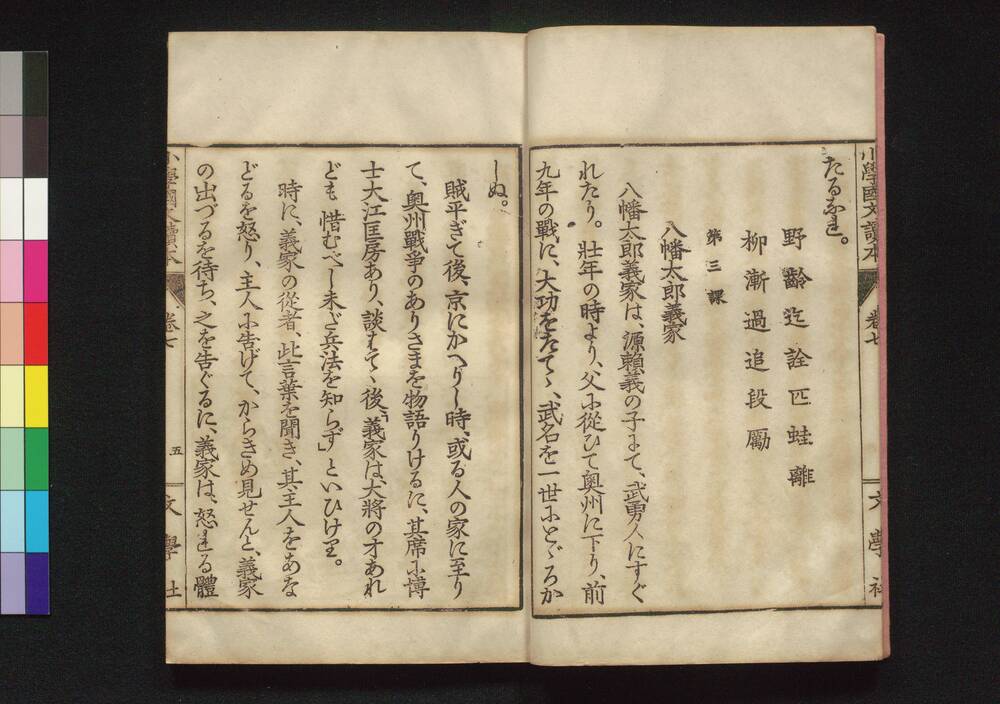 小學國文讀本
卷七
文學社
たるなれ。
野齡迄詮匹蛙離
柳漸過追段勵
第三課
八幡太郎義家
八幡太郎義家は、源賴義の子にて、武勇人にすぐ
れたり。壯年の時より、父に從ひて奧州に下り、前
九年の戰に、大功をたてゝ、武名を一世にとゞろか
しぬ。
賊平ぎて後、京にかへりし時、或る人の家に至り
て、奧州戰爭のありさまを物語りけるに、其席に博
士大江匡房あり、談はてゝ後、「義家は大將の才あれ
ども惜むべし未だ兵法を知らず」といひけり。
時に、義家の從者、此言葉を聞き、其主人をあな
どるを怒り、主人に告げて、からきめ見せんと、義家
の出づるを待ち、之を告ぐるに、義家は、怒れる體
小學國文讀本
卷七
五
文學社